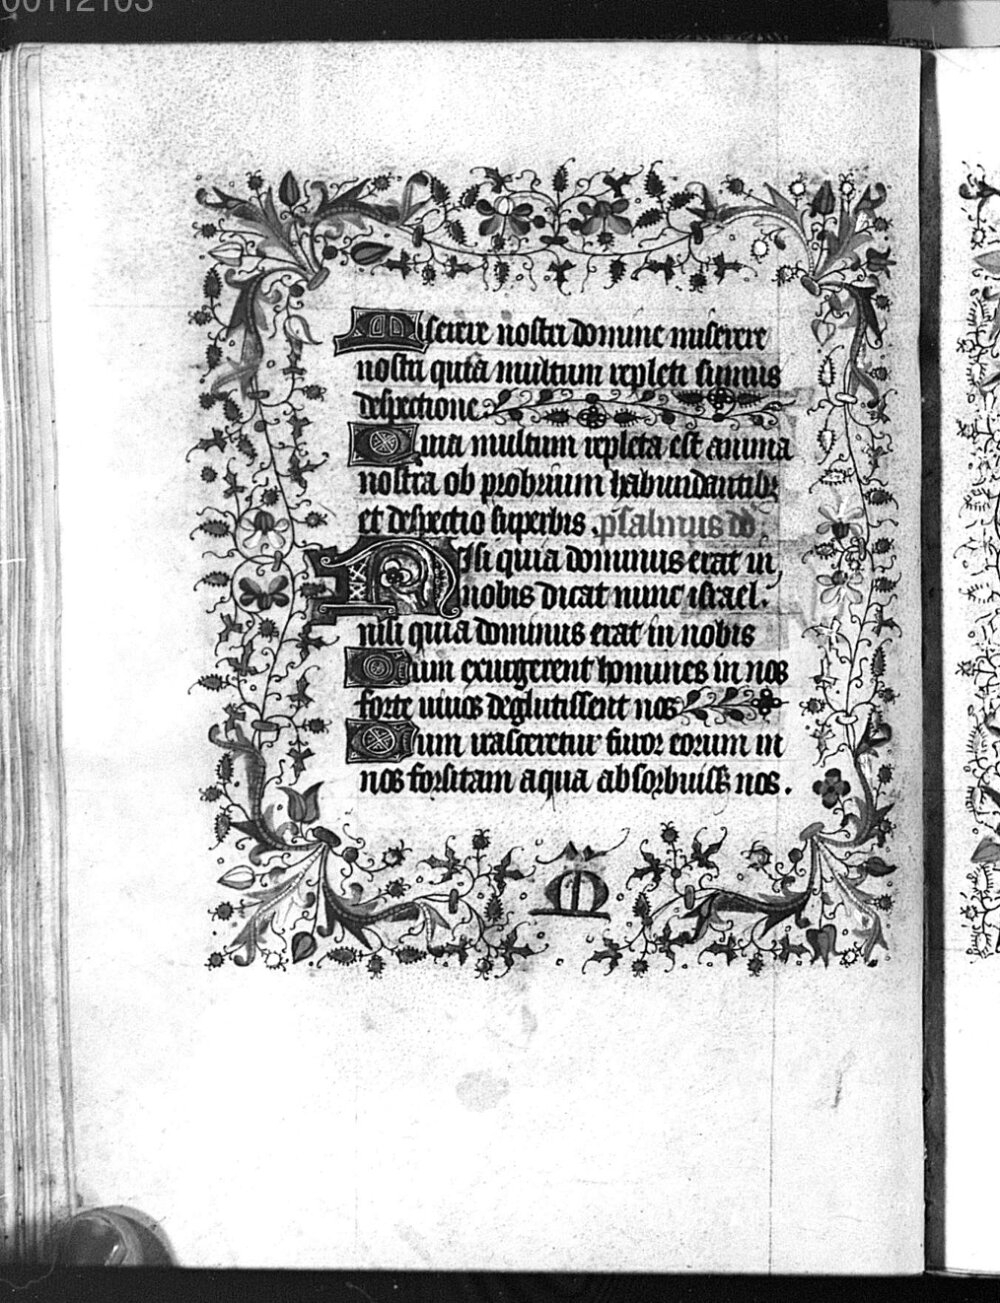 00112103
Miserere nostri domine miserere
nostri quia multum repleti sumus
despectione.
Quia multum repleta est anima
nostra ob probrium habundantibz
et despectio superbis. psalmus dd.
Nisi quia dominus erat in
nobis dicat nunc israel.
nisi quia dominus erat in nobis
Cum exurgerent homines in nos
forte uiuos deglutissent nos
Cum irasceretur furor eorum in
nos forsitam aqua absorbuisset nos.
M